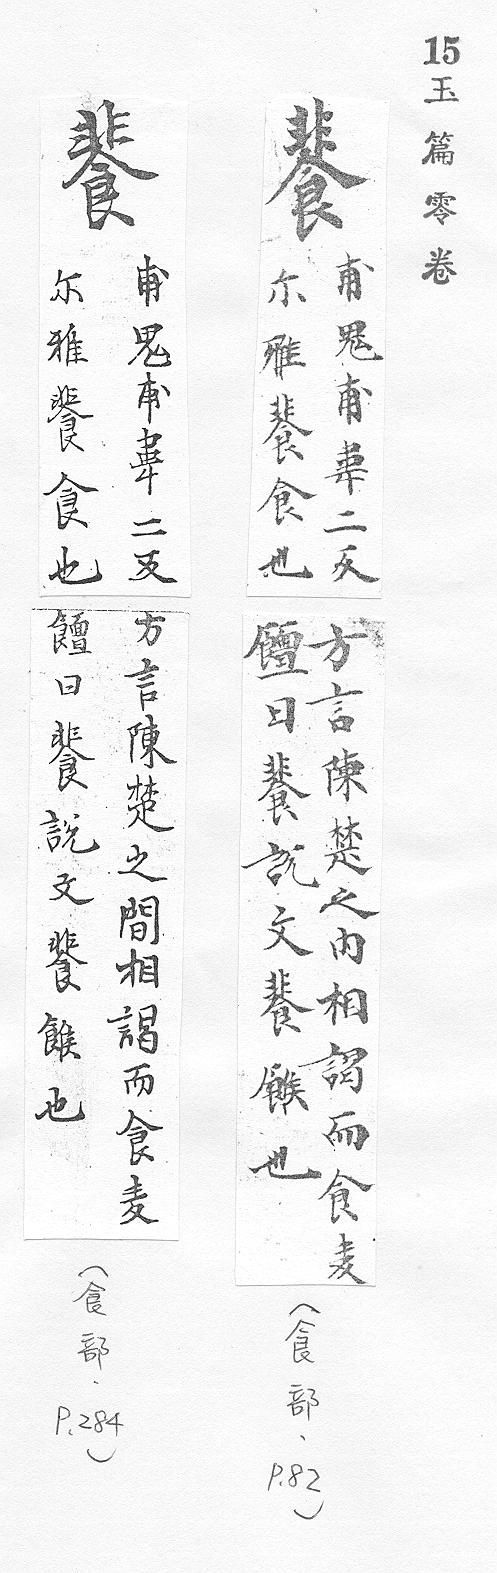 15玉篇零卷
餥
甫鬼甫韋二反
尓雅餥食也
方言陳楚之内相謁而食麦
饘曰餥説文餥餱也
(食部、P.82)
餥
甫鬼甫韋二反
尓雅餥食也
方言陳楚之間相謁而食麦
饘曰餥說文餥餱也
(食部、P.284)